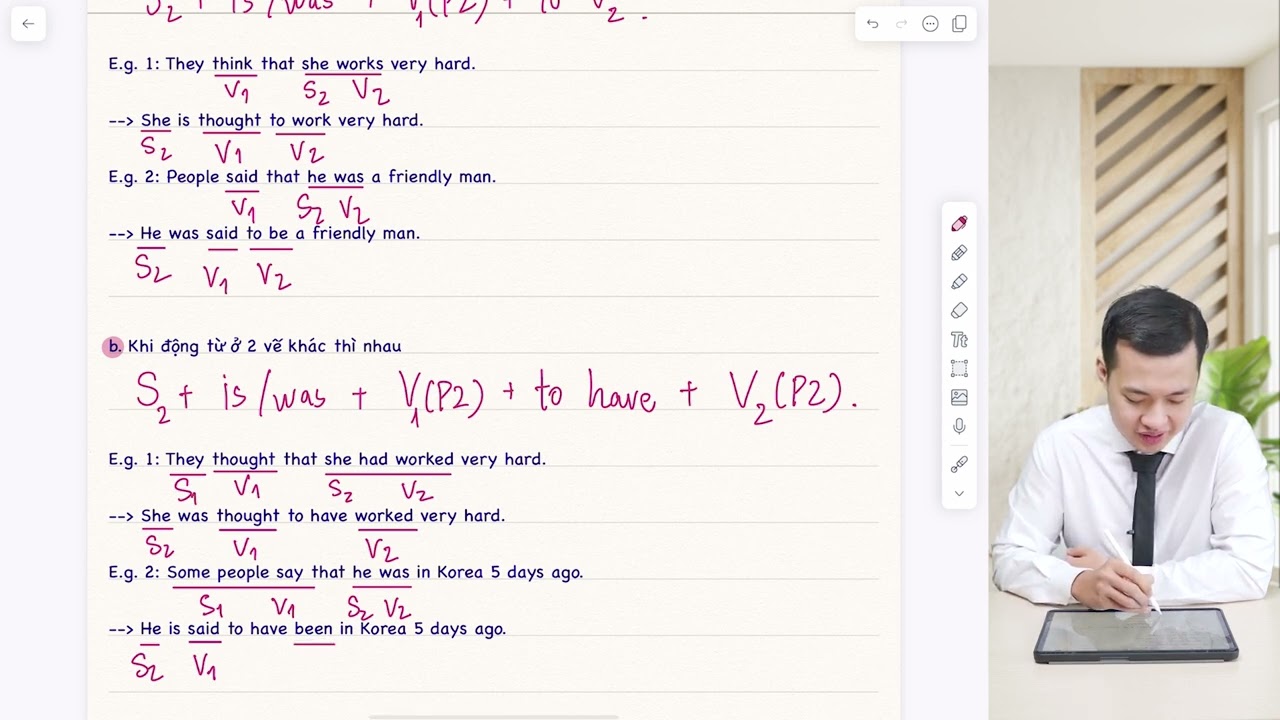 S2 + is/was + V1(P2) + to V2.
E.g. 1: They think that she works very hard.
V1 S2 V2
--> She is thought to work very hard.
S2 V1 V2
E.g. 2: People said that he was a friendly man.
V1 S2 V2
--> He was said to be a friendly man.
S2 V1 V2
b. Khi động từ ở 2 vế khác thì nhau
S2 + is/was + V1(P2) + to have + V2(P2).
E.g. 1: They thought that she had worked very hard.
S1 V1 S2 V2
--> She was thought to have worked very hard.
S2 V1 V2
E.g. 2: Some people say that he was in Korea 5 days ago.
S1 V1 S2 V2
--> He is said to have been in Korea 5 days ago.
S2 V1
Tt